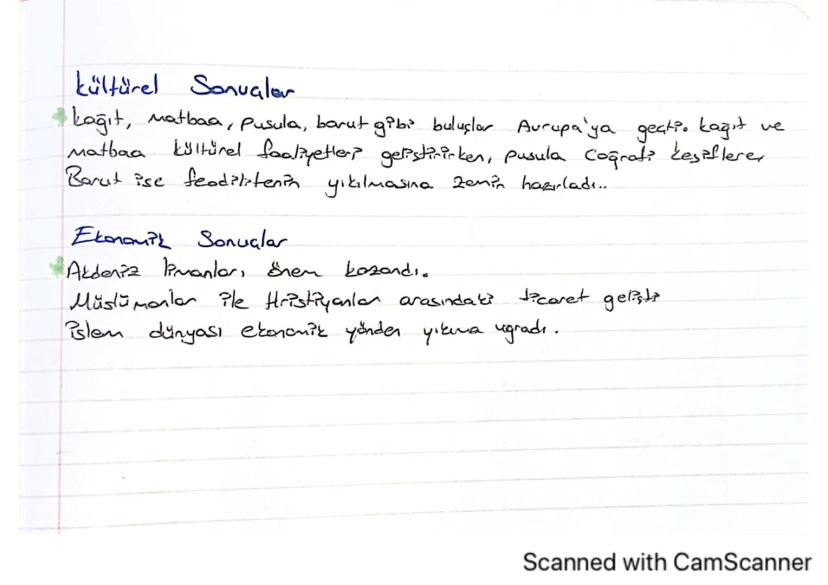 Kültürel Sonuçlar
Kağıt, Matbaa, pusula, barut gibi buluşlar Avrupa'ya geçti. Kağıt ve
Matbaa kültürel faaliyetleri geliştirirken, pusula Coğrafi keşiflere,
Barut ise feodalitenin yıkılmasına zemin hazırladı..
Ekonomik Sonuçlar
Akdeniz limanları önem kazandı.
Müslümanlar ile Hristiyanlar arasındaki ticaret gelişti
islam dünyası ekonomik yönden yıkıma uğradı.
Scanned with CamScanner